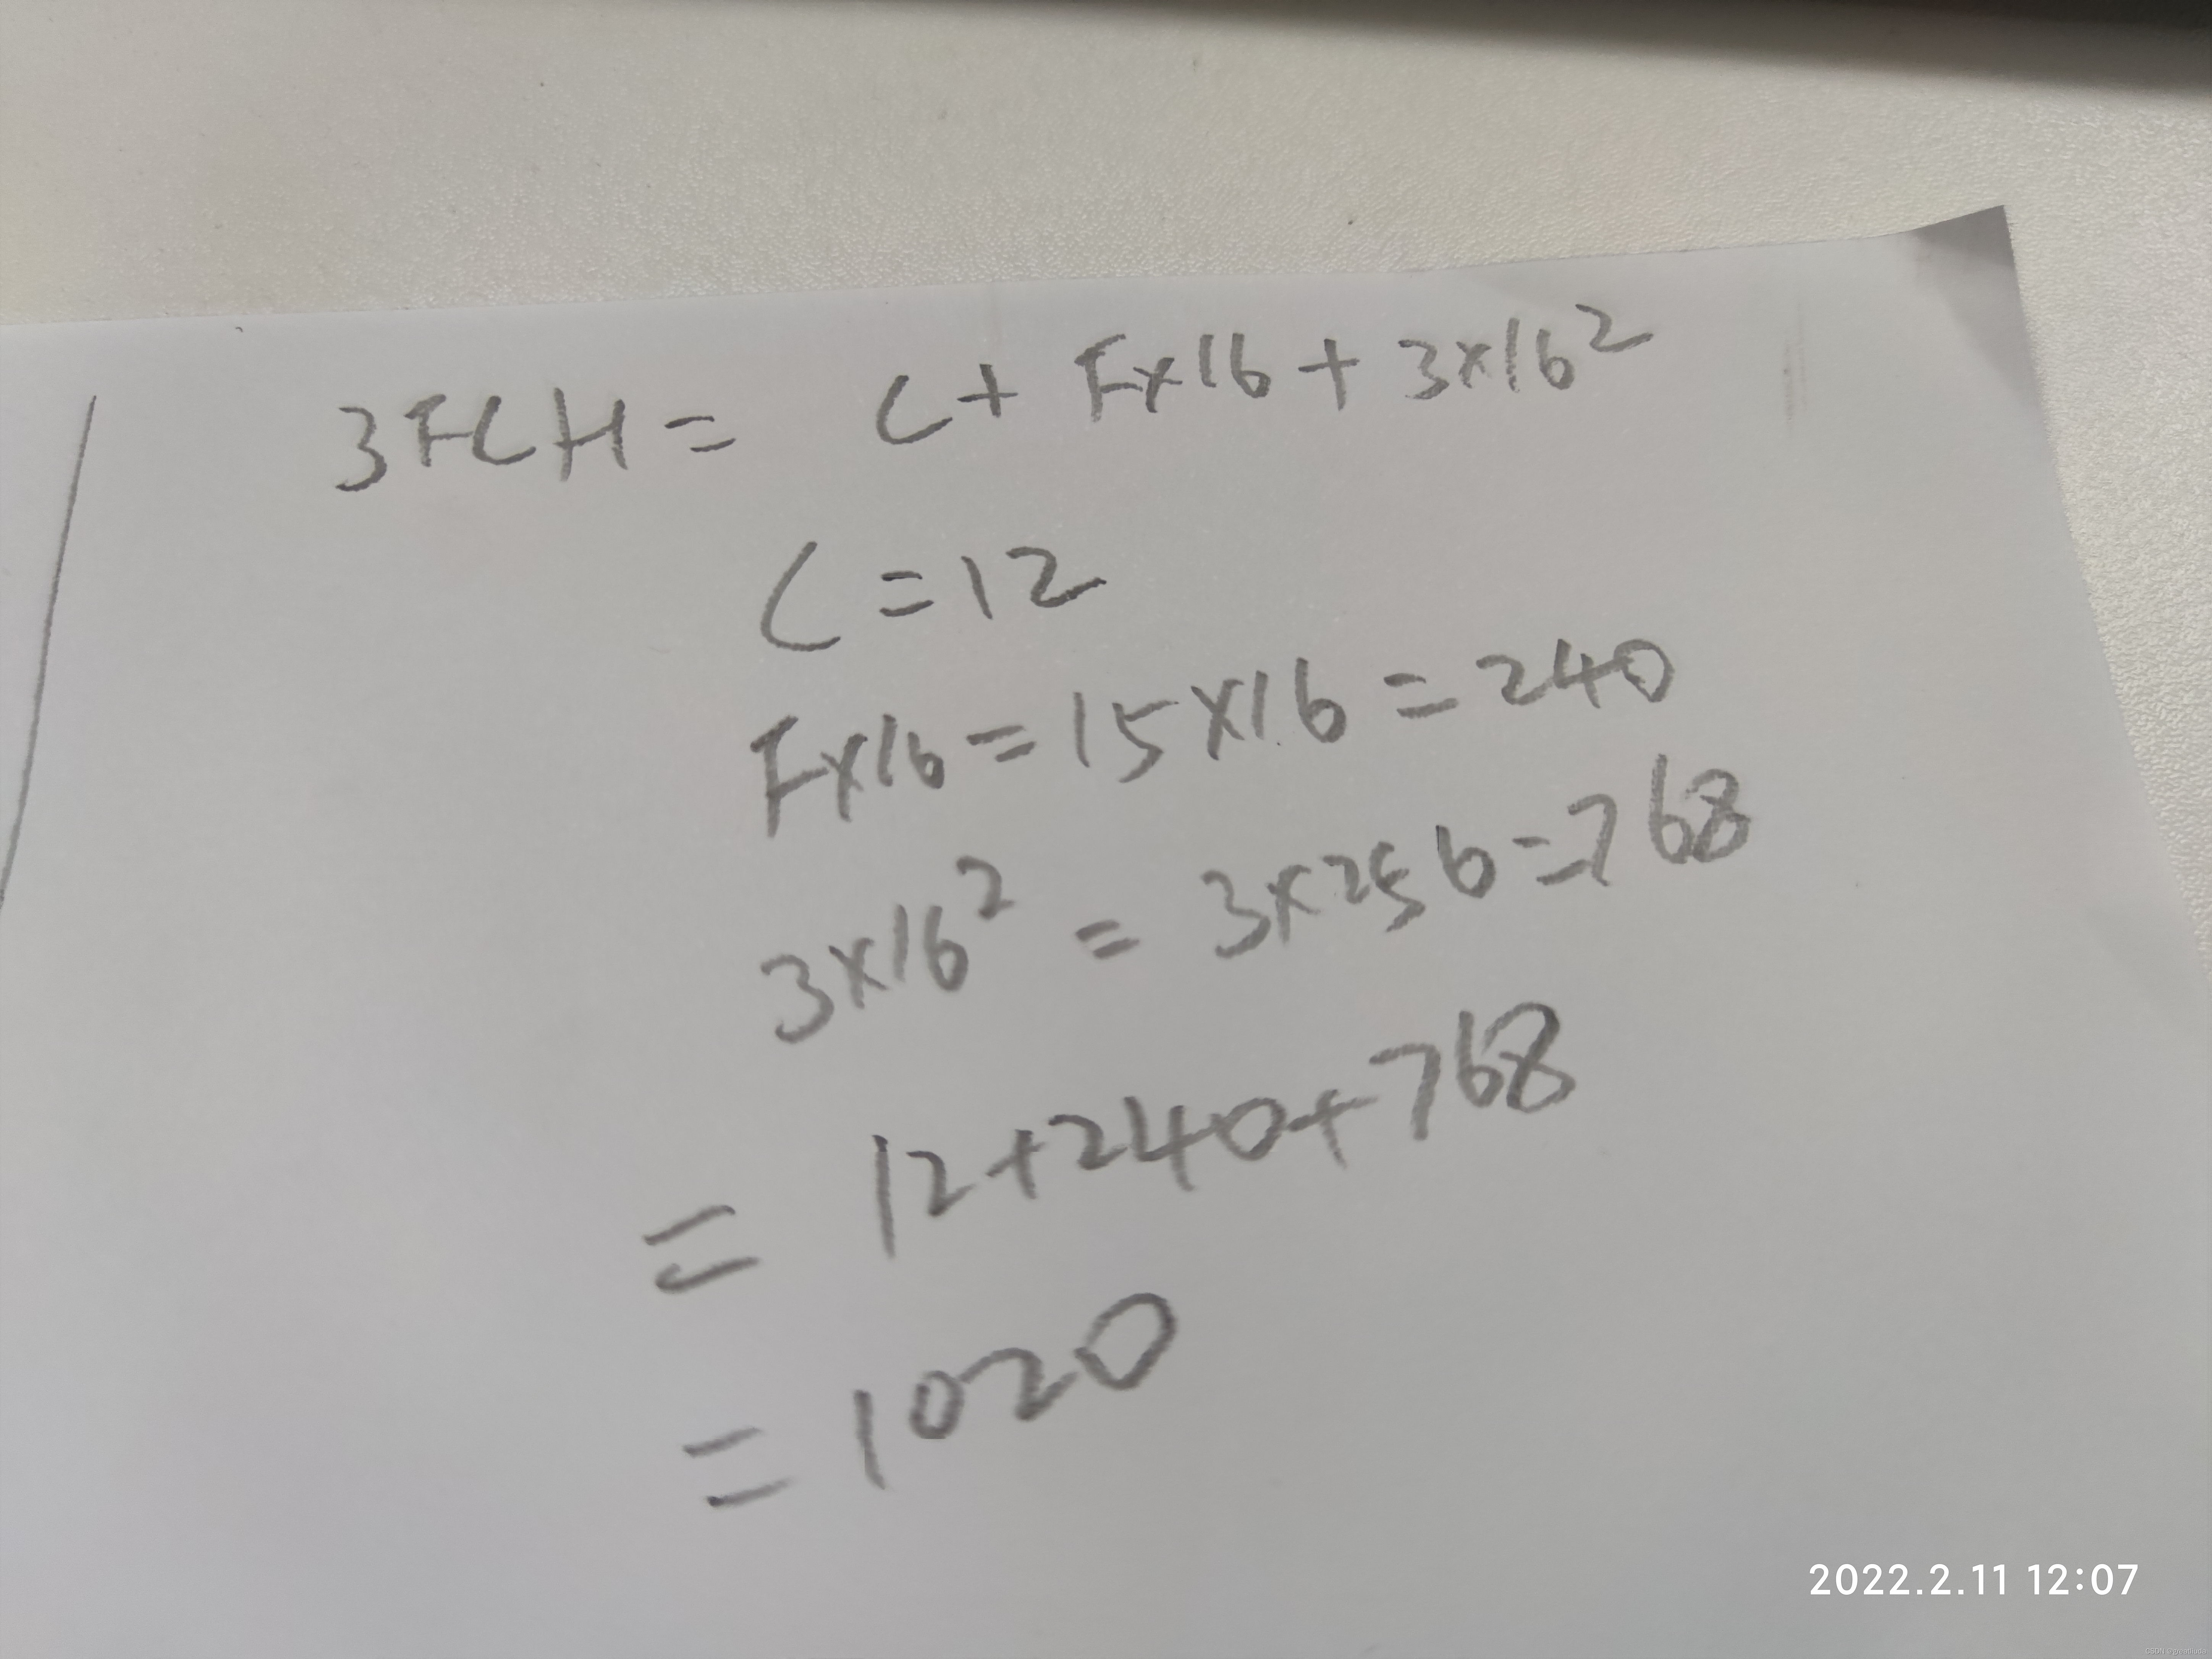 3FCH = C + F×16 + 3×16²
C = 12
F×16 = 15×16 = 240
3×16² = 3×256 = 768
= 12+240+768
= 1020
2022.2.11 12:07